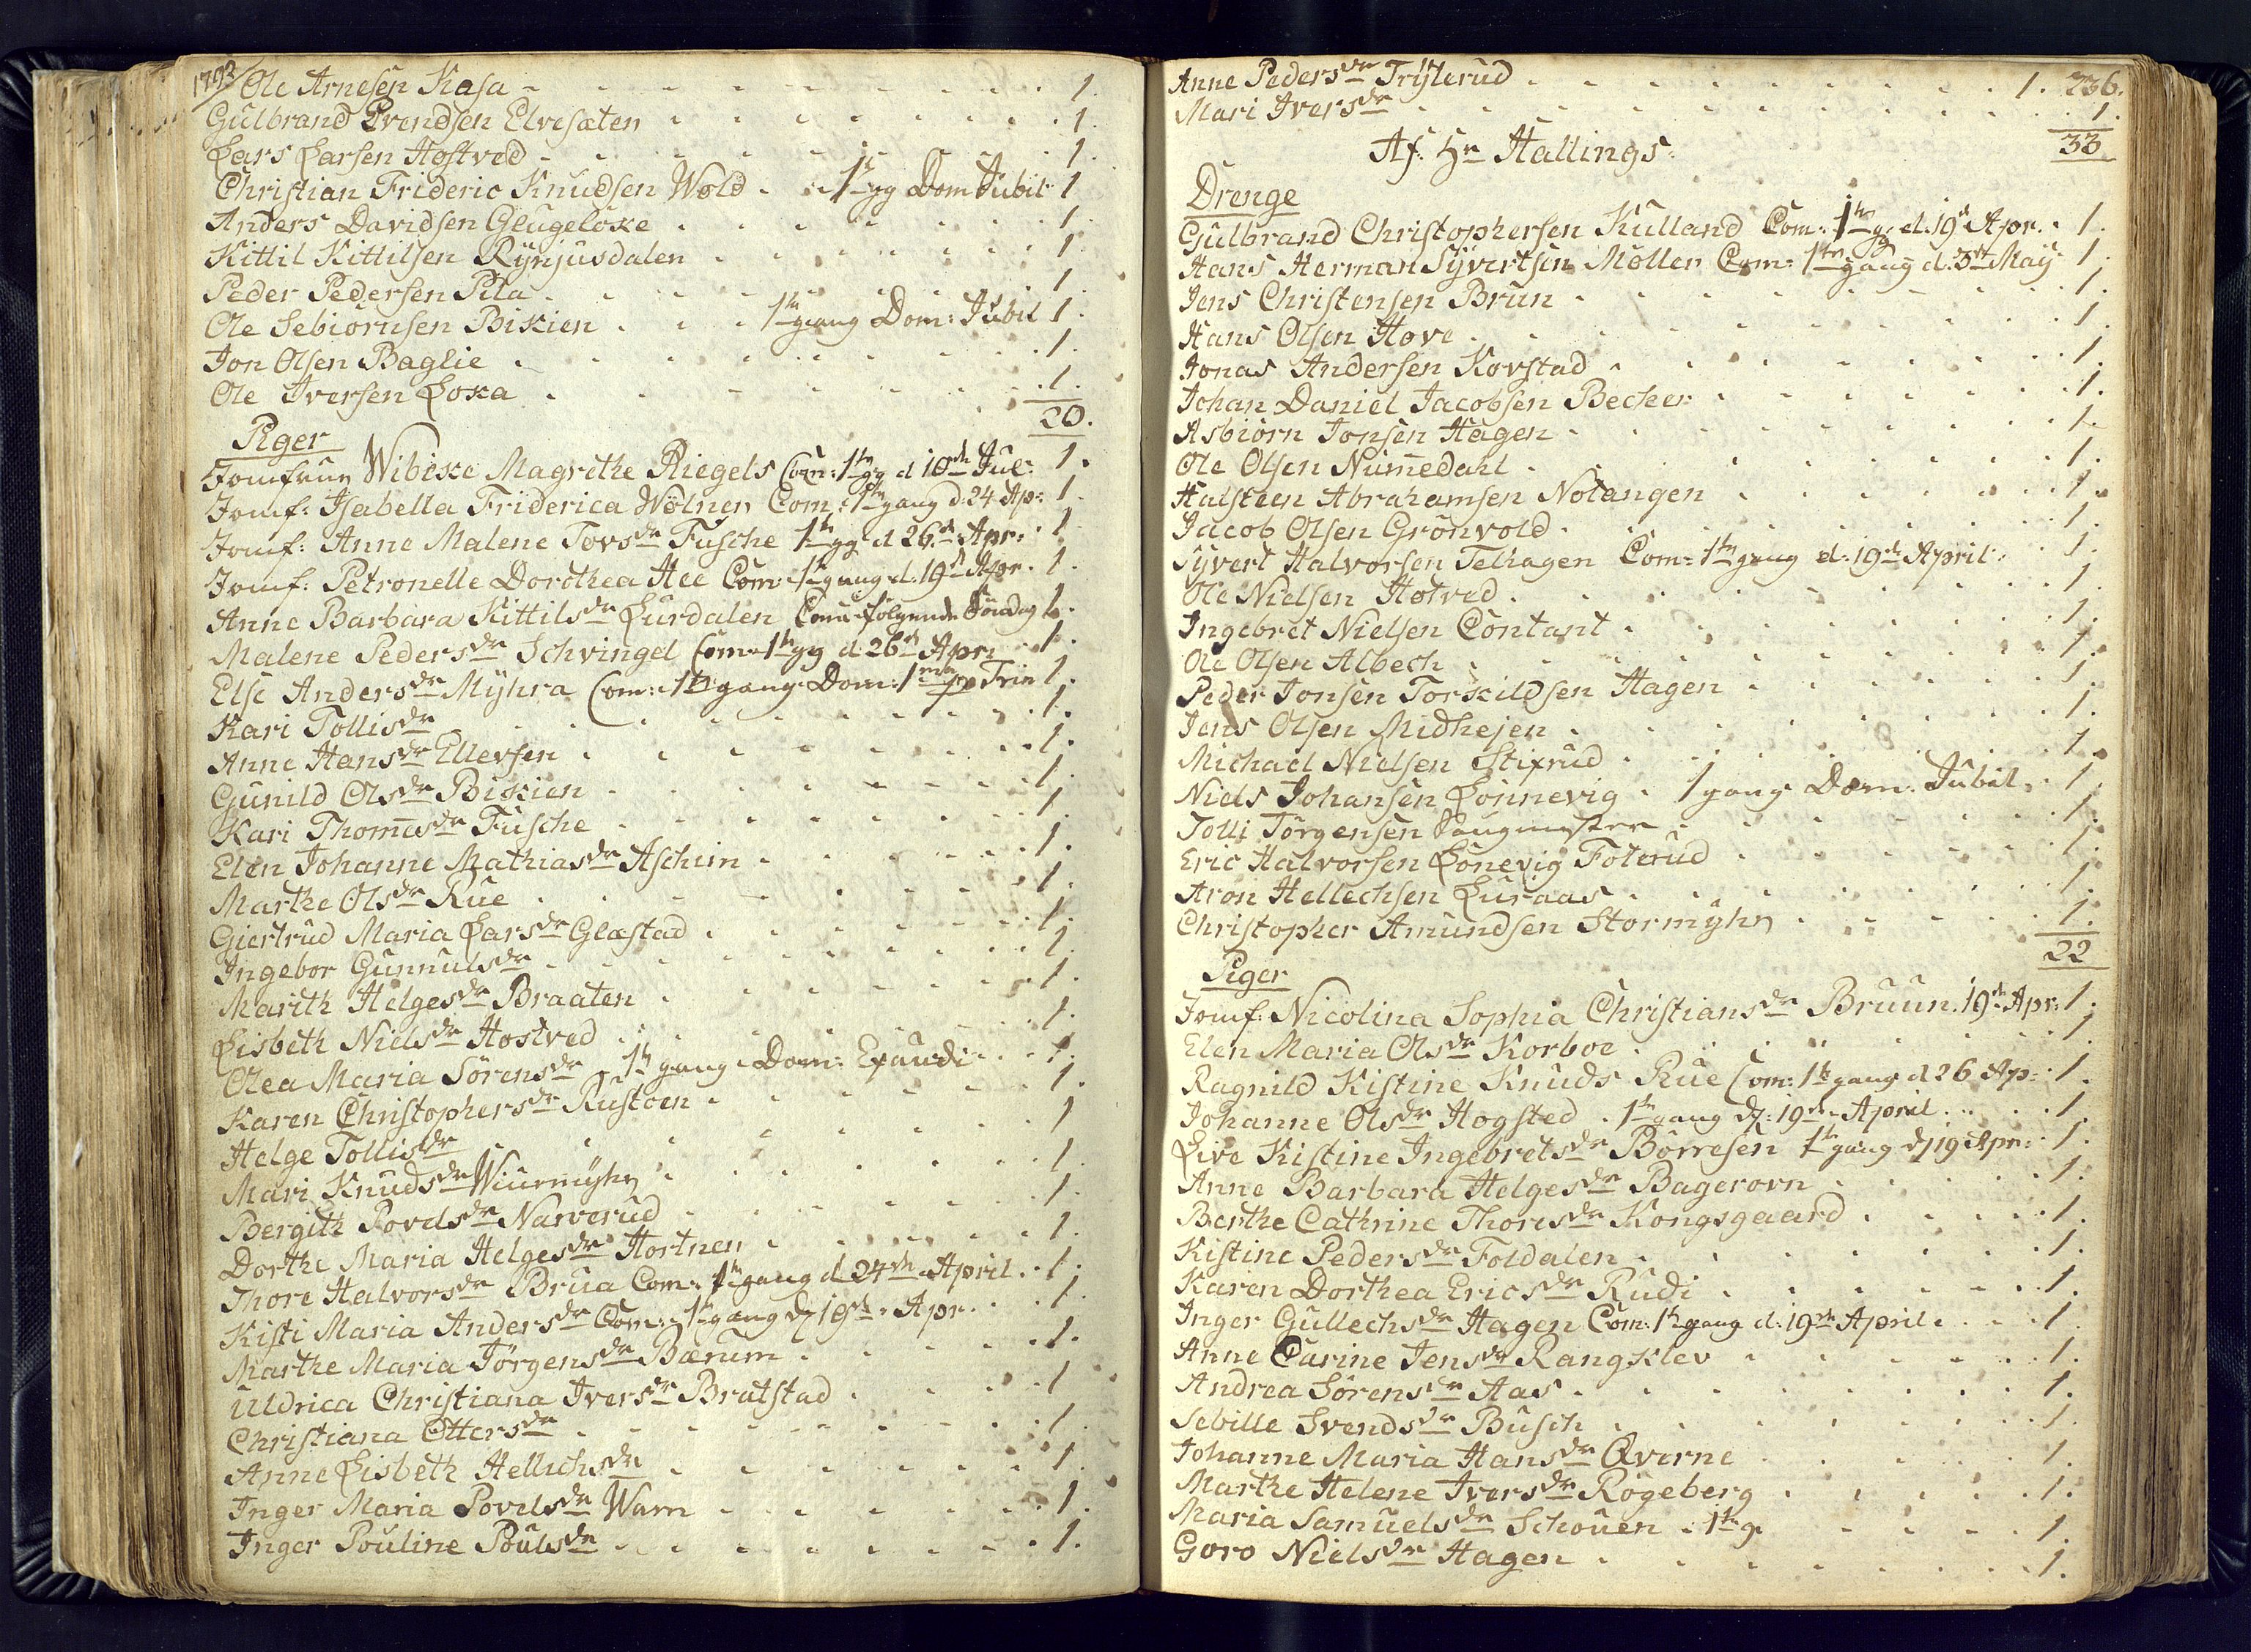 1792 Ole Arnesen Kasa - - - 1.
Gulbrand Evendsen Elvesæten - - - 1.
Lars Larsen Hostved - - - 1.
Christian Frideric Knudsen Wold - 1te gg Dom Jubil 1
Anders Davidsen Glugeloke - - - 1.
Kittil Kittilsen Rynjusdalen - - - 1.
Peder Pedersen Pila - - - 1.
Ole Sebiørnsen Bikien - - - 1te gang Dom: Jubil 1.
Jon Olsen Baglie - - - 1.
Ole Iversen Loka - - - 1.
20.
Piger
Jomfrue Wibeke Magrethe Riegels Com: 1te gg d 10de Jul: 1.
Jomf: Isabella Friderica Wølner Com: 1te gang d: 24 Ap: 1.
Jomf: Anne Malene Torsdr Fusche 1te gg d 26de Apr: 1.
Jomf: Petronelle Dorothea Hee Com: 1te gang d. 19de Apr. 1.
Anne Barbara Kittilsdr Lurdalen Com: følgende Søndag 1.
Malene Pedersdr Schvingel Com: 1te gg d: 26de Apr: 1.
Else Andersdr Myhra Com: 1te gang Dom: 1ma p Trin 1.
Kari Tollisdr - - - 1.
Anne Hansdr Ellevsen - - - 1.
Gunild Olsdr Bikien - - - 1.
Kari Thomasdr Fusche - - - 1.
Elen Johanne Mathiasdr Aschim - - - 1.
Marthe Olsdr Rue - - - 1.
Giertrud Maria Larsdr Glæstad - - - 1.
Ingebor Gunnulsdr - - - 1.
Marith Helgesdr Braaten - - - 1.
Lisbeth Nielsdr Hostved - - - 1.
Olea Maria Sørensdr - 1te gang Dom: Exaudi - - 1.
Karen Christophersdr Rustoen - - - 1.
Helge Tollisdr - - - 1
Mari Knudsdr Wiurmyhr - - - 1.
Bergith Povelsdr Narverud - - - 1.
Dorthe Maria Helgesdr Hortnen - - - 1.
Thore Halvorsdr Brua Com: 1te gang d 24de April - 1.
Kisti Maria Andersdr Com: 1te gang d 19de Apr. - 1.
Marthe Maria Jørgensdr Bærum - - - 1.
Uldrica Christiana Iversdr Brutstad - - - 1
Christiana Ottersdr - - - 1.
Anne Lisbeth Hellichsdr - - - 1.
Inger Maria Povelsdr Warn - - - 1.
Inger Pouline Poulsdr - - - 1.
Anne Pedersdr Trylerud - - - 1. 236.
Mari Iversdr - - - 1.
33
Af: Hr Hallings:
Drenge
Gulbrand Christophersen Kulland Com: 1te gg d. 19de Apr. - 1.
Hans Herman Syvertsen Møller Com: 1te gang d. 3die May 1.
Jens Christensen Brun - - - 1.
Hans Olsen Hove - - - 1.
Jonas Andersen Korstad - - - 1.
Johan Daniel Jacobsen Becker - - - 1.
Asbiørn Jonsen Hagen - - - 1.
Ole Olsen Numedahl - - - 1.
Halsteen Abrahamsen Notangen - - - 1.
Jacob Olsen Grønvold - - - 1.
Syvert Halvorsen Telhagen Com: 1te gang d: 19de April - 1.
Ole Nielsen Hotved - - - 1.
Ingebret Nielsen Contant - - - 1.
Ole Olsen Albech - - - 1.
Peder Jonsen Torkildsen Hagen - - - 1.
Jens Olsen Midhejen - - - 1.
Michael Nielsen Stixrud - - - 1.
Niels Johansen Lønnevig - 1 gang Dom. Jubil. - 1.
Tolli Jørgensen - - - 1.
Eric Halvorsen Lønevig Foterud - - - 1.
Aron Hellechsen Luraas - - - 1.
Christopher Amundsen Stormyhr - - - 1.
22
Piger
Jomf: Nicolina Sophia Christiansdr Bruun. 19de Apr. 1.
Elen Maria Olsdr Korboe - - - 1.
Ragnild Kistine Knuds Rue Com: 1te gang d 26 Ap: 1.
Johanne Olsdr Hogsted - 1te gang d: 19de April - - 1.
Live Kistine Ingebretsdr Børresen 1te gang d 19 Apr: 1.
Anne Barbara Helgesdr Bagerovn - - - 1.
Berthe Cathrine Thoresdr Kongsgaard - - - 1.
Kistine Pedersdr Foldalen - - - 1.
Karen Dorthea Ericsdr Rudi - - - 1.
Inger Gullechsdr Hagen Com: 1te gang d: 19de April - - 1.
Anne Carine Jensdr Rangklev - - - 1.
Andrea Sørensdr Aas - - - 1.
Sebille Svendsdr Busch - - - 1.
Johanne Maria Hansdr Qverne - - - 1.
Marthe Helene Iversdr Rogeberg - - - 1.
Maria Samuelsdr Schouen - 1te g. - - - 1.
Goro Nielsdr Hagen - - - 1.